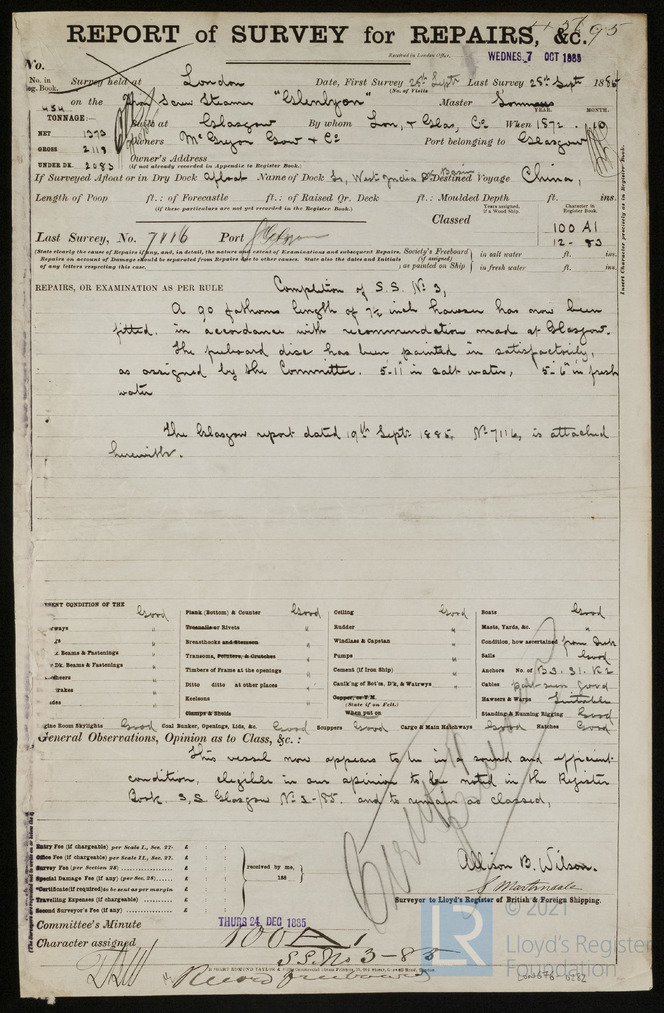 REPORT of SURVEY for REPAIRS, &c.
Received in London Office,
WEDNES. 7 OCT 1885
No.
No. in
eg. Book.
Survey held at London Date, First Survey 25th Sept Last Survey 28th Sept 1885
(No. of Visits
on the Iron Screw Steamer "Glenlyon" Master
YEAR. MONTH.
TONNAGE:—
NET 1373
GROSS 2118
UNDER DK. 2083
Built at Glasgow By whom Lon. & Glas. Co When 1872 . 10
Owners McGregor Gow & Co Port belonging to Glasgow
Owner's Address
(if not already recorded in Appendix to Register Book.)
If Surveyed Afloat or in Dry Dock Afloat Name of Dock So. West India Dk Basin Destined Voyage China,
Length of Poop ft.: of Forecastle ft.: of Raised Qr. Deck ft.: Moulded Depth ft. ins.
(if these particulars are not yet recorded in the Register Book.)
Years assigned, if a Wood Ship.
Character in Register Book.
Classed 100 A1
12 - 83
Last Survey, No. 7116 Port Glasgow
(State clearly the cause of Repairs if any, and, in detail, the nature and extent of Examinations and subsequent Repairs.
Repairs on account of Damage should be separated from Repairs due to other causes. State also the dates and Initials
of any letters respecting this case.
Society's Freeboard (if assigned) as painted on Ship
in salt water ft. ins.
in fresh water ft. ins.
Insert Character precisely as in Register Book.
REPAIRS, OR EXAMINATION AS PER RULE Completion of S.S. No 3,
A 90 fathoms length of 7½ inch hawser has now been
fitted. in accordance with recommendation made at Glasgow.
The freeboard disc has been painted in satisfactorily,
as assigned by the Committee. 5-11 in salt water, 5-6 in fresh
water
The Glasgow report dated 19th Sept 1885, No 7116, is attached
herewith.
PRESENT CONDITION OF THE Good
Dk. Beams & Fastenings "
Plank (Bottom) & Counter Good
Treenails or Rivets "
Breasthooks and Stemson "
Transoms, Pointers, & Crutches "
Timbers of Frame at the openings "
Ditto ditto at other places "
Keelsons "
Clamps & Shelfs
Ceiling Good
Rudder "
Windlass & Capstan "
Pumps "
Cement (if Iron Ship) "
Caulk'ng of Bot'm, D'k, & Watrwys "
Copper, or Y.M.
(State if on Felt.)
When put on
Boats Good
Masts, Yards, &c. "
Condition, how ascertained from Deck
Sails Good
Anchors No. of B3. S1. K2
Cables Good
Hawsers & Warps Suitable
Standing & Running Rigging Good
Engine Room Skylights Good Coal Bunker, Openings, Lids, &c. Good Scuppers Good Cargo & Main Hatchways Good Hatches Good
General Observations, Opinion as to Class, &c. :
This vessel now appears to be in a sound and efficient
condition, eligible in our opinion to be noted in the Register
Book. S.S. Glasgow No 3-/85. and to remain as classed,
Entry Fee (if chargeable) per Scale I., Sec. 27- £
Office Fee (if chargeable) per Scale II., Sec. 27- £
Survey Fee (per Section 28) £
Special Damage Fee (if any) (per Sec. 28) £
*Certificate(if required) to be sent as per margin
Travelling Expenses (if chargeable) £
Second Surveyor's Fee (if any) £
received by me,
188
Allison B. Wilson.
J Martindale
Surveyor to Lloyd's Register of British & Foreign Shipping.
Committee's Minute THURS 24 DEC 1885
Character assigned 100 A 1
S.S. No 3 - 85
Record freeboard
LR
© 2021
Lloyd's Register
Foundation